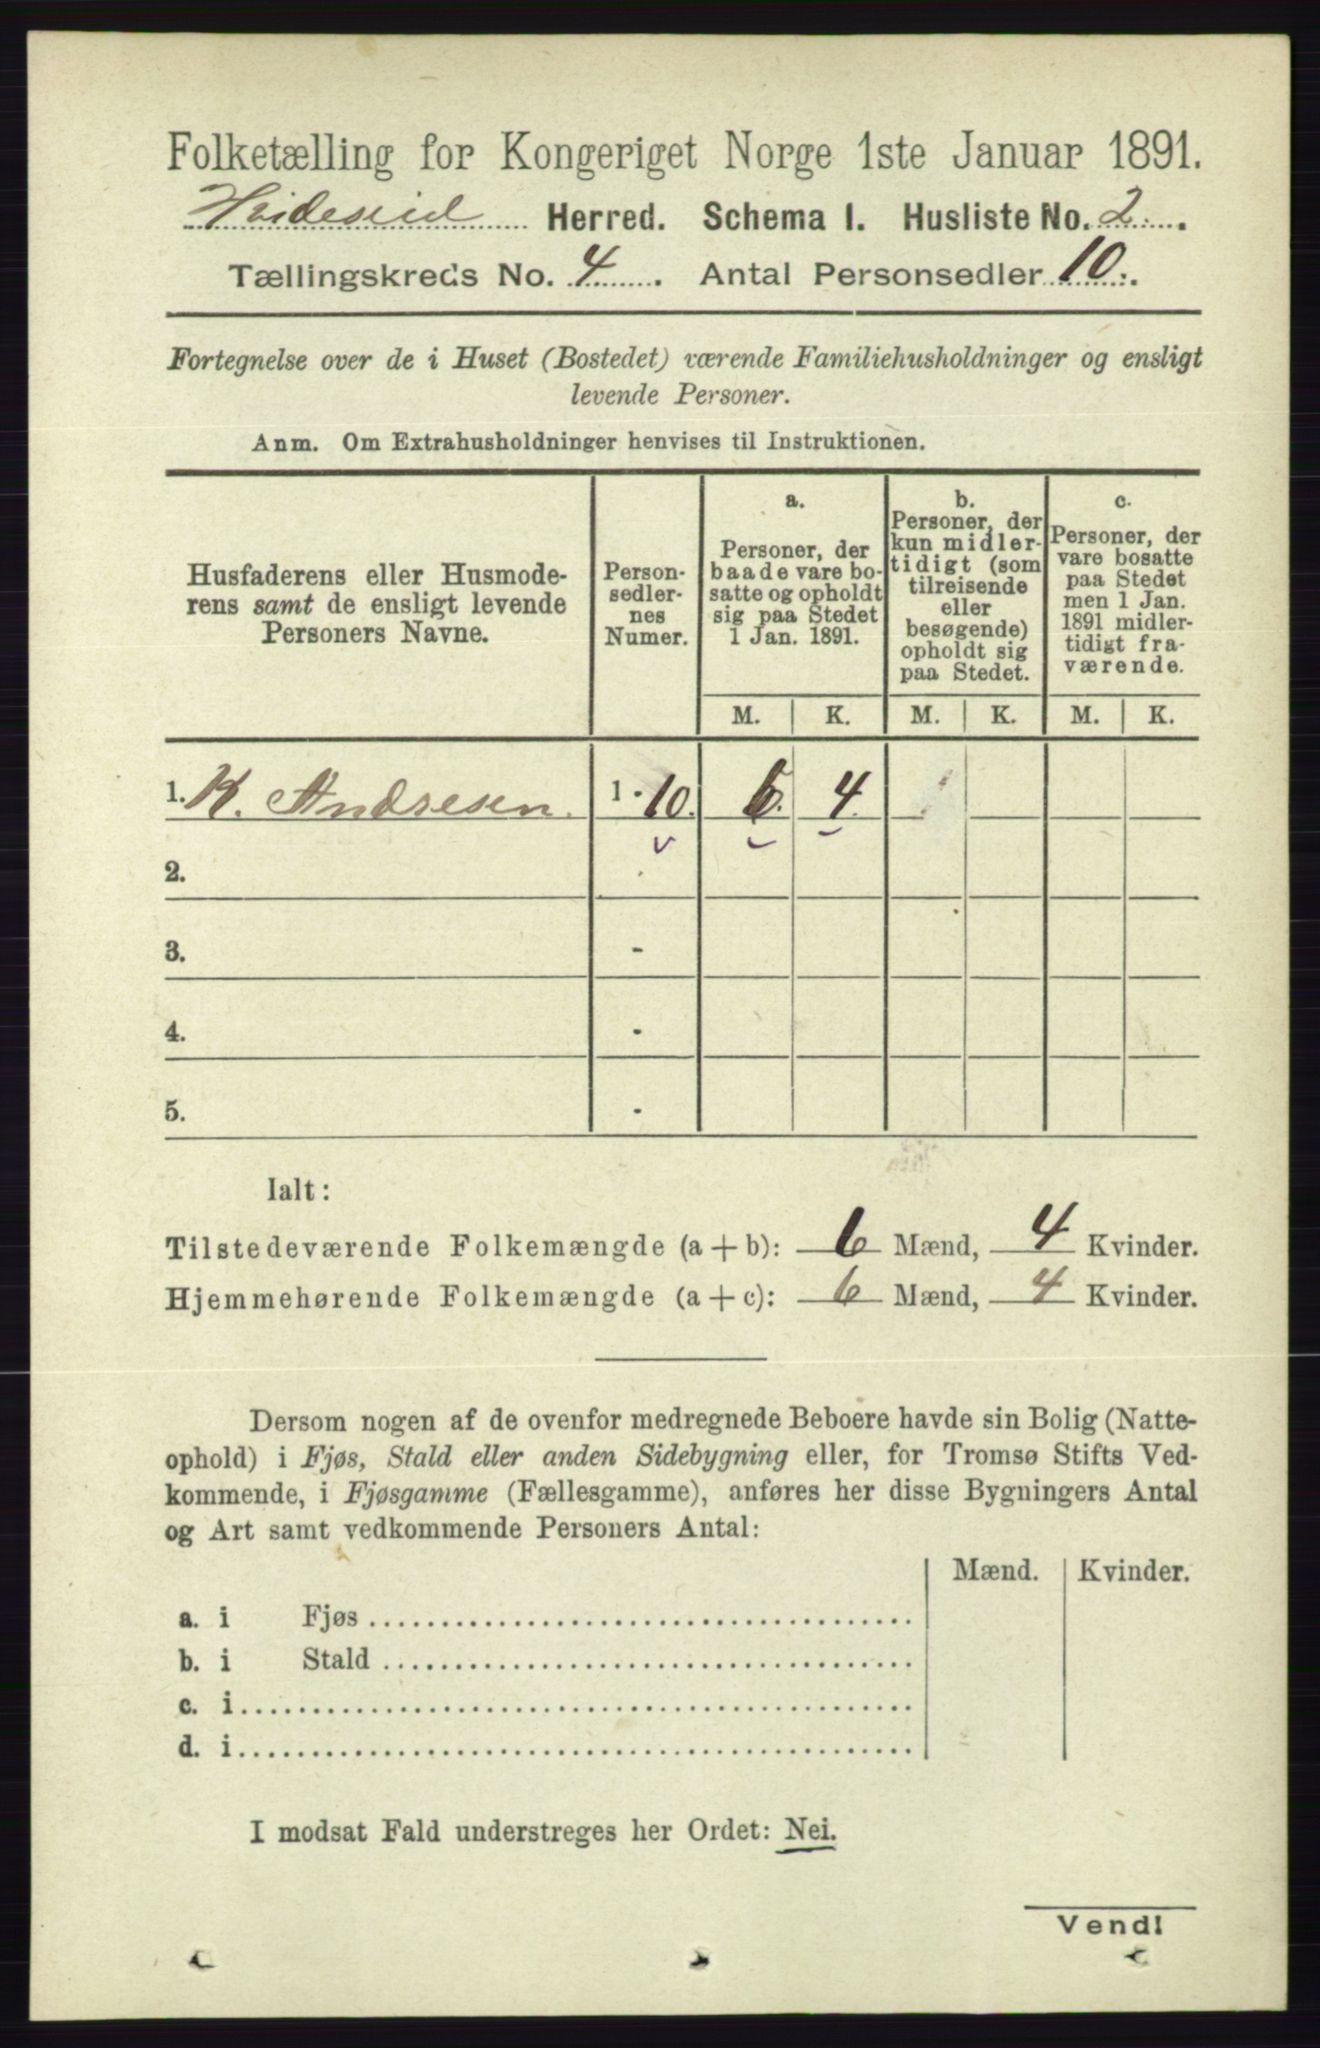 Folketælling for Kongeriget Norge 1ste Januar 1891.
Hvideseid Herred. Schema I. Husliste No. 2.
Tællingskreds No. 4. Antal Personsedler 10.
Fortegnelse over de i Huset (Bostedet) værende Familiehusholdninger og ensligt
levende Personer.
Anm. Om Extrahusholdninger henvises til Instruktionen.
Husfaderens eller Husmode-
rens samt de ensligt levende
Personers Navne.
Person-
sedler-
nes
Numer.
a.
Personer, der
baade vare bo-
satte og opholdt
sig paa Stedet
1 Jan. 1891.
b.
Personer, der
kun midler-
tidigt (som
tilreisende
eller
besøgende)
opholdt sig
paa Stedet.
c.
Personer, der
vare bosatte
paa Stedet
men 1 Jan.
1891 midler-
tidigt fra-
værende.
M. K. M. K. M. K.
1. K. Andresen. 1 - 10. 6. 4.
2. -
3. -
4. -
5. -
Ialt:
Tilstedeværende Folkemængde (a + b): 6 Mænd, 4 Kvinder.
Hjemmehørende Folkemængde (a + c): 6 Mænd, 4 Kvinder.
Dersom nogen af de ovenfor medregnede Beboere havde sin Bolig (Natte-
ophold) i Fjøs, Stald eller anden Sidebygning eller, for Tromsø Stifts Ved-
kommende, i Fjøsgamme (Fællesgamme), anføres her disse Bygningers Antal
og Art samt vedkommende Personers Antal:
Mænd. Kvinder.
a. i Fjøs
b. i Stald
c. i
d. i
I modsat Fald understreges her Ordet: Nei.
Vend!